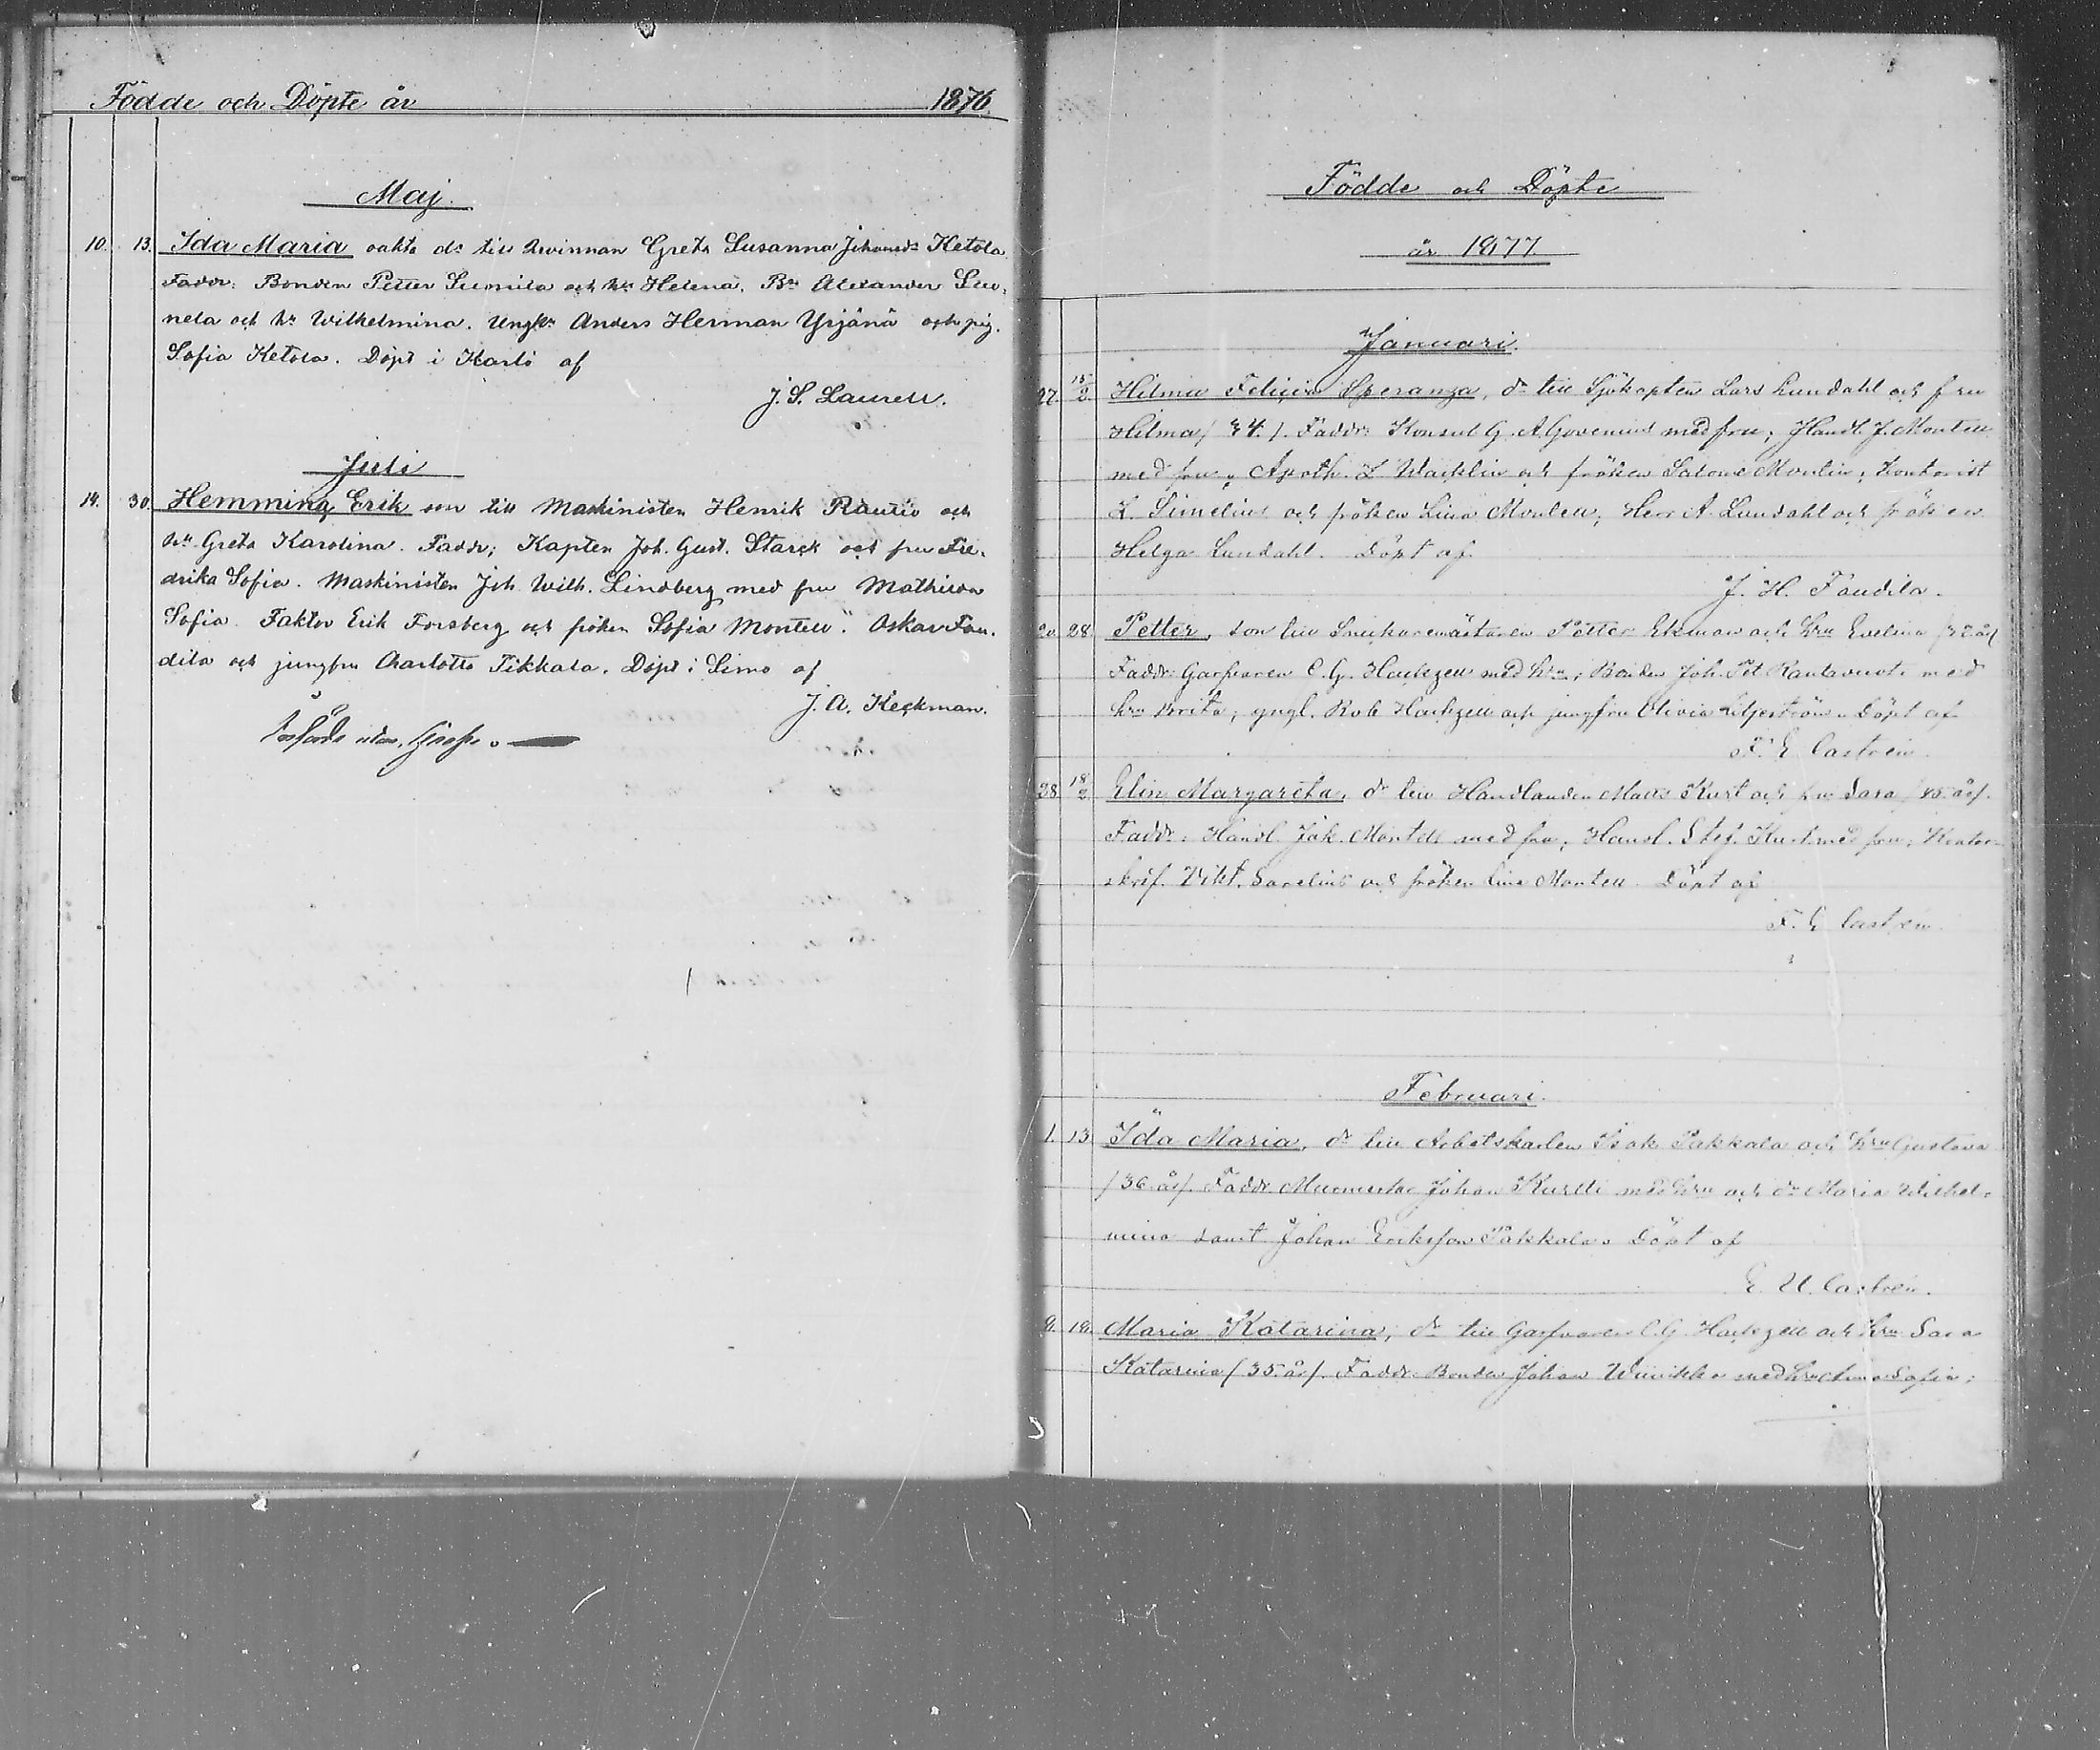 Födde och Döpte år 1876.
Maj.
10. 13. Ida Maria oäkta dr till qvinnan Greta Susanna Johansdr Ketola
Faddr: Bonden Petter Suomela och h: Helena. Bn Alexander Suo-
nela och h: Wilhelmina. Ungk: Anders Herman Yrjänä och pig.
Sofia Ketola. Döpt i Karlö af
J. S. Laurell.
Juli
14. 30. Hemming Erik son till Maskinisten Henrik Rautio och
hu Greta Karolina. Faddr; Kapten Joh. Gust. Starck och fru Fre-
drika Sofia. Maskinisten Joh. Wilh. Lindberg med fru Mathilda
Sofia. Faktor Erik Forsberg och fröken Sofia Montell. Oskar Fan-
dila och jungfru Charlotta Tikkala. Döpt i Simo af
J. A. Keckman.
Födde och Döpte
år 1877.
Januari.
27. 15/2 Hilma Felicia Speranza, dr till Sjökapten Lars Lundahl och fru
Hilma / 34. /. Faddr: Konsul G. A. med fru; Handl. J. Montell
med fru, Apoth. L. Wacklin och fröken Salome Montin; Kontorist
L. Simelius och fröken Lina Montell; Herr A. Lundahl och fröken
Helga Lundahl. Döpt af
J. H. Fandila.
20. 28. Petter, son till Snickaremästaren Petter Ekman och hru Evelina / år/
Faddr: Garfvaren C. G. med hru; Bonden Joh. Pet med
hru Brita; yngl. Rob. och jungfru Olivia Liljeström. Döpt af
F. E. Castrén.
28. 18/2 Elin Margareta, dr till Handlanden Matts Kurt och fru Sara / år/.
Faddr: Handl. Jak. Montell med fru; Handl. Stef. Kurt med fru; Kontor-
skrif. Vikt. Sarelius och fröken Lina Montell. Döpt af
F. E. Castrén.
Februari.
1. 13. Ida Maria, dr till Arbetskarlen Isak Pakkala och hru Gustava
/36 år/. Faddr. Johan Kurtti med hru och dr Maria Wilhel-
mina samt Johan Eriksson Pakkala. Döpt af
E. U. Castrén.
9. 18. Maria Katarina, dr till Garfvaren C. G. och hru Sara
Katarina /35 år/. Faddr. Bonden Johan med hru Anna Sofia;